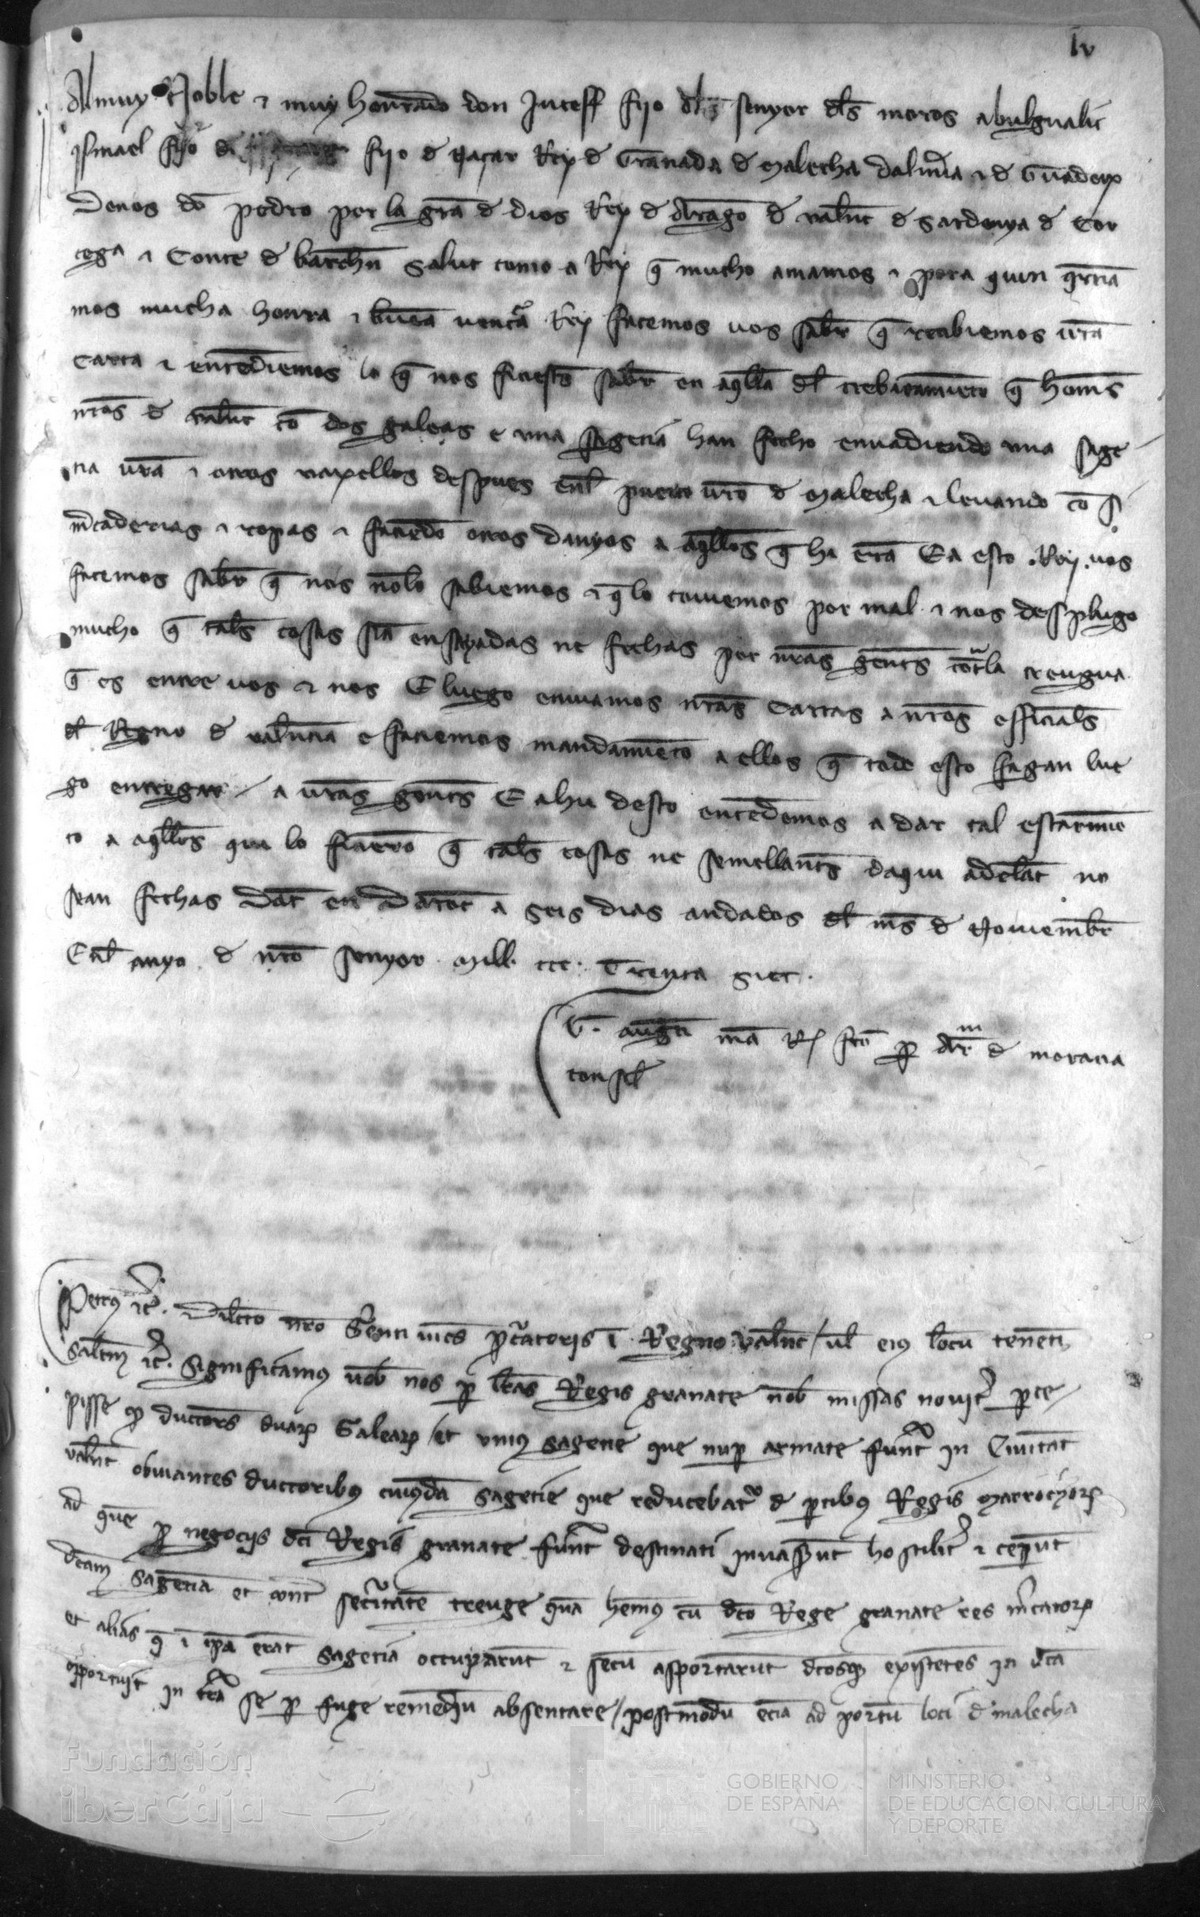 lv
Al muy Noble ⁊ muy honrado don Juceff fijo del senyor dls moros abulgualit
Ismael fijo de fijo de naçar Rey d Granada d Malecha dalmia ⁊ d Guadex
Denos do Pedro por la gra d dios Rey d Arago d valenc d Sardenya d Cor
cega ⁊ Conte d barchn Salut como a Rey q mucho amamos ⁊ pora quin qrria
mos mucha honra ⁊ buea ventra Rey facemos vos sabr q recibiemos vra
carta ⁊ entediemos lo q nos ficiests sabr en aqlla dl crebantamieto q homs
nros d valenc co dos galeas e una sagetia han fecho envadiendo una sage
tia vra ⁊ otros vaxellos despues enl puerto vro d Malecha ⁊ levando co si
mcaderias ⁊ ropas ⁊ faciedo otros danyos a aqllos q hi era Ea esto Rey vos
facemos sabr q nos nolo sabiemos ⁊ q lo tovemos por mal ⁊ nos desplugo
mucho q tals cosas sia ensayadas ne fechas por nras gents cotrala treugua
q es entre vos ⁊ nos E luego enviamos nras cartas a nros officials
dl Regno d valencia e faciemos mandamieto a ellos q todo esto fagan lue
go entregar a vras gents E ahu desto entedemos a dar tal escarmie
to a aqllos qui lo ficiero q tals cosas ne semellants daqui adelat no
sean fechas Dat en Daroc a seis dias andados dl mes d Noviembr
Enl anyo d nro senyor Mill ccc Trenta siet
G. augti ma R fco p Ar d moraria
consil
Petrus etc. Dilecto nro Genti vices pcatoris i Regno valenc / ul eius locu tenenti
Saltm etc. Significamus vob nos p lras Regis granate nob missas novit pce
pisse q ductors duar Galear / et unius Sagetie que nup armate funt in Civitat
valenc obviantes ductoribus cuiusda Sagetie que reducebat d ptibus Regis Marrochior
ad que p negociis dci Regis granate funt destinati invasut hostilit ⁊ ceput
dcam Sagetia et cont secitate treuge qua hemus cu dco Rege granate res mcator
et alias q i ipa erat Sagetia occuparut ⁊ secu asportarut dcosq existetes in dca
opportuit in tra se p fuge remediu absentare / postmodu ecia ad portu loci d malecha
Fundación
iberCaja
GOBIERNO
DE ESPAÑA
MINISTERIO
DE EDUCACIÓN, CULTURA
Y DEPORTE